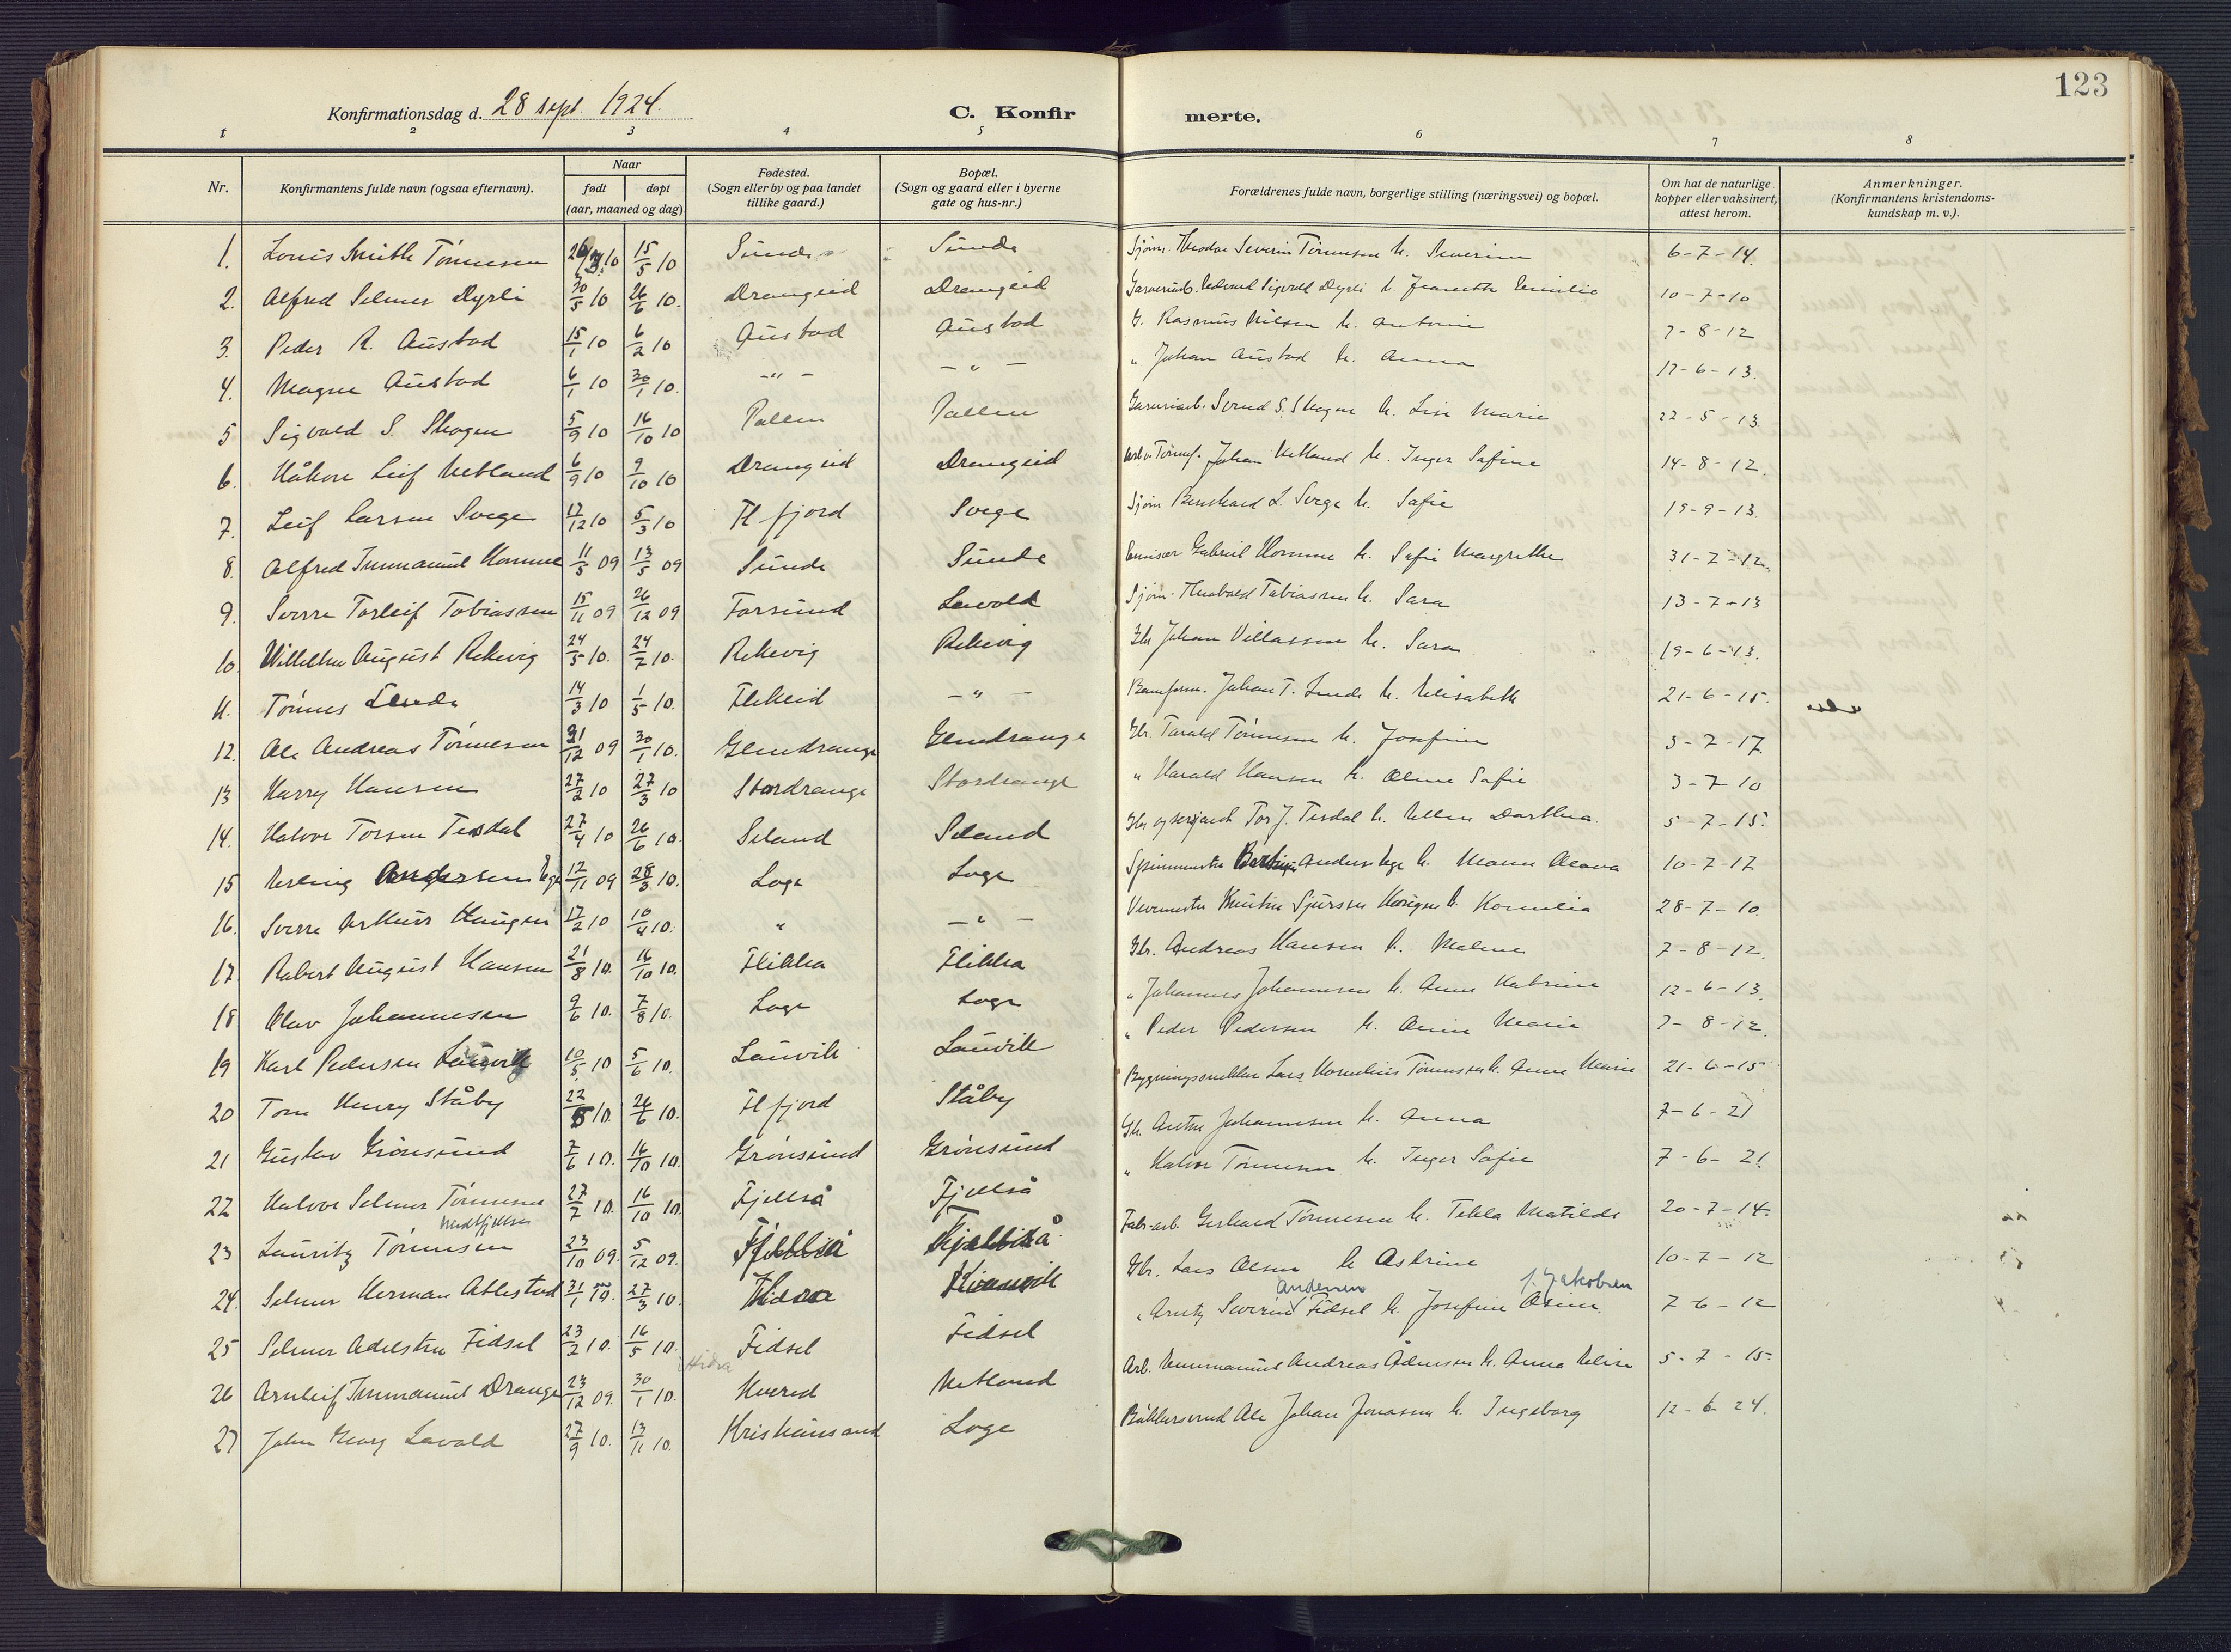 123
Konfirmationsdag d. 28 sept. 1924.
C. Konfirmerte.
1 2 3 4 5 6 7 8
Nr. Konfirmantens fulde navn (ogsaa efternavn). Naar født døpt (aar, maaned og dag) Fødested. (Sogn eller by og paa landet tillike gaard.) Bopæl. (Sogn og gaard eller i byerne gate og hus-nr.) Forældrenes fulde navn, borgerlige stilling (næringsvei) og bopæl. Om hat de naturlige kopper eller vaksinert, attest herom. Anmerkninger. (Konfirmantens kristendoms-kundskap m. v.).
1. Louis Smith Tønnesen 26/3 10 15/5 10 Sunde Sunde Sjøm. Theodor Severin Tønnesen h. Severine 6-7-14.
2. Alfred Selmer Dyrli 30/5 10 26/6 10. Drangeid Drangeid Sigvald Dyrli h. Jeanette Emilie 10-7-10
3. Peder R. Austad 15/1 10 6/2 10 Austad Austad G. Rasmus Nilsen h. Antonie 7-8-12
4. Magne Austad 6/1 10 30/1 10. -"- -"- " Johan Austad h. Anna 17-6-13.
5 Sigvald S. Skogen 5/9 10 16/10 10 Pallen Pallen Garveriarb. Svend S. Skogen h. Lise Marie 22-5-13.
6. Håkon Leif Netland 6/9 10 9/10 10 Drangeid Drangeid Johan Netland h. Inger Sofine 14-8-12.
7. Leif Larsen Svege 17/12 10 5/3 10 Fl fjord Svege Sjøm Bernhard L. Svege h. Sofie 19-9-13.
8. Alfred Immanuel Homme 11/5 09 13/5 09 Sunde Sunde Emissær Gabriel Homme h. Sofie Margrethe 31-7-12.
9. Sverre Torleif Tobiassen 15/11 09 26/12 09 Farsund Lavold Sjøm. Theobald Tobiassen h. Sara 13-7-13
10. Willhelm August Rekevig 24/5 10. 24/7 10. Rekevig Rekevig Gbr Johan Villassen h. Sara 19-6-13.
11. Tønnes Lende 14/3 10 1/5 10. Flikkeid -"- Banform. Johan T. Lende h. Elisabeth 21-6-15.
12. Ole Andreas Tønnesen 21/12 09 30/1 10. Glendrange Glendrange Gbr. Tarald Tønnesen h. Josefine 3-7-17.
13 Harry Hansen 27/2 10 27/3 10 Stordrange Stordrange " Harald Hansen h. Oline Sofie 3-7-10
14. Halvor Torsen Tesdal 27/4 10 26/6 10. Seland Seland Gbr og serjeant Tor J. Tesdal h. Ellen Dorthea. 5-7-15.
15 Erling Andersen Ege 12/11 09 28/3 10. Loge Loge Spinnmester Anders Ege h. 10-7-17
16. Sverre Arthur Haugen 17/2 10 10/4 10. " -"- Vevemester Sjursen Haugen h. Kornelia 28-7-10.
17. Robert August Hansen 21/8 10. 16/10 10. Flikka Flikka Gbr. Andreas Hansen h. Malene 7-8-12.
18 Olav Johannesen 9/6 10. 7/8 10. Loge Loge " Johannes Johannesen h. Anne Katrine 12-6-13.
19 Karl Pedersen Lauvik 10/5 10 5/6 10. Lauvik Lauvik " Peder Pedersen h. Anne Marie 7-8-12.
20 Tom Henry Ståby 22/5 10. 26/6 10. Fl fjord Ståby Bygningssnekker Lars Kornelius Tønnessen h. Anne Marie 21-6-15
21 Gustav Grønsund 7/6 10. 16/10 10. Grønsund Grønsund Gb. Anton Johannesen h. Anna 7-6-21
22 Halvor Selmer Tønnesen 27/7 10. 16/10 10. Fjellså Fjellså " Halvor Tønnesen h. Inger Sofie 7-6-21
23 Lauritz Tønnesen 23/10 09. 5/12 09. Fjellså Fabr-arb. Gerhard Tønnesen h. Tekla Matilde 20-7-14.
24. Selmer Herman Abbestad 31/1 10. 27/3 10. Hidra Gbr. Lars Olsen h Astrine 10-7-12
25 Selmer Adelsten Fidsel 23/2 10. 16/5 10. Fidsel Fidsel " Arnts Severin Andersen Fidsel h. Josefine Asine J. Jakobsen 7-6-12
26 Arnleif Immanuel Drange 23/12 09. 30/1 10. Hidra Kvered Netland Arb. Emmanuel Andreas Ådnesen h. Anna Elise 5-7-15.
27 John Georg Lavold 27/9 10. 13/11 10. Kristiansand Loge Bøkkersvend Ole Johan Jonassen h. Ingeborg 12-6-24.